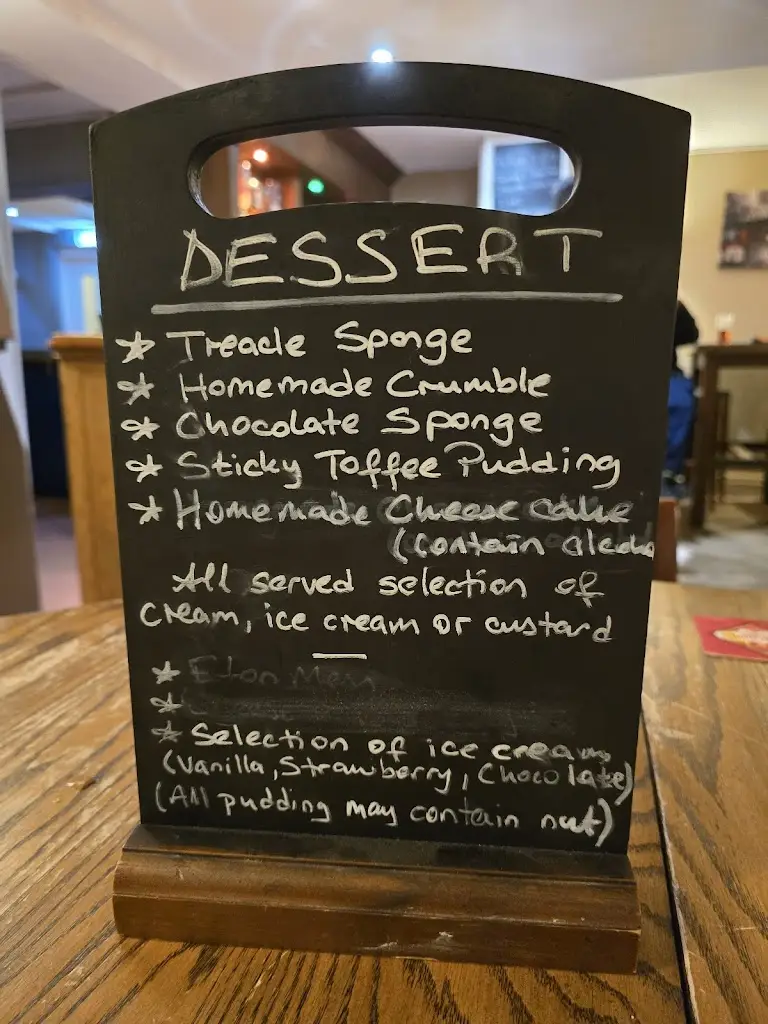 DESSERT
* Treacle Sponge
* Homemade Crumble
* Chocolate Sponge
* Sticky Toffee Pudding
* Homemade Cheese cake
(contain alcoho
All served selection of
cream, ice cream or custard
—
* Eton
*
* Selection of ice cream
(Vanilla, Strawberry, Chocolate)
(All pudding may contain nut)